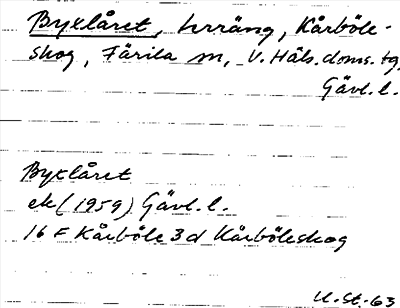 Byxlåret, terräng, Kårböle-
skog, Färila sn, V. Häls. doms. tg.
Gävl. l.
Byxlåret
ek (1959) Gävl. l.
16 F Kårböle 3 d Kårböleskog
U. St. -63